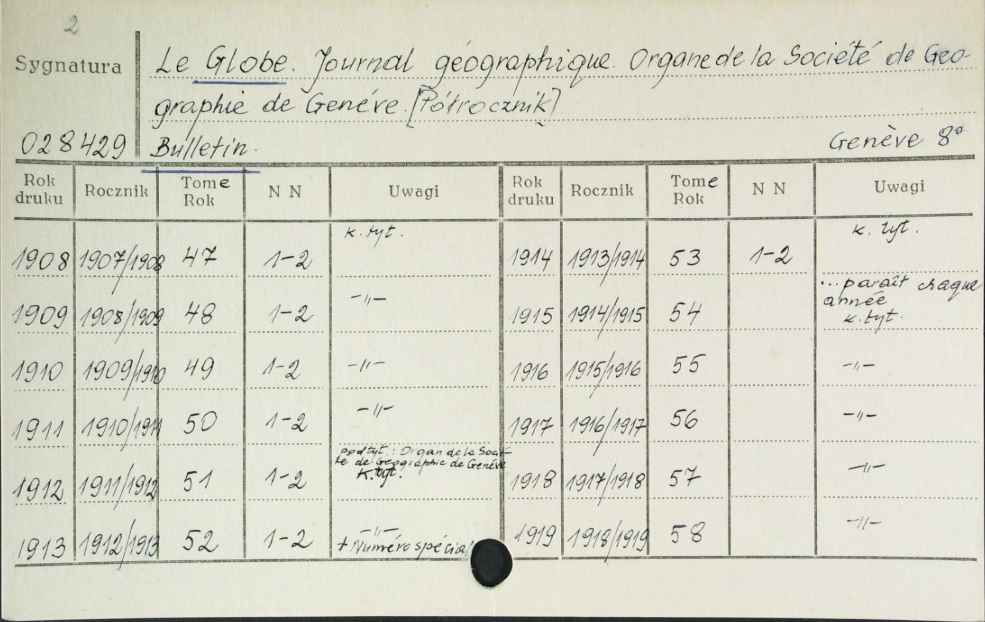 2
Sygnatura
Le Globe. Journal géographique Organe de la Société de Geo-
graphie de Genéve. [Półrocznik]
028429 Bulletin. Genève 8°
Rok druku Rocznik Tome Rok N N Uwagi Rok druku Rocznik Tome Rok N N Uwagi
1908 1907/1908 47 1-2 k. tyt. 1914 1913/1914 53 1-2 k. tyt.
1909 1908/1909 48 1-2 -"- 1915 1914/1915 54 ...paraît chaque année k. tyt.
1910 1909/1910 49 1-2 -"- 1916 1915/1916 55 -"-
1911 1910/1911 50 1-2 -"- 1917 1916/1917 56 -"-
1912 1911/1912 51 1-2 podtyt.: Organ de la Socié-té de Geographie de Genève k. tyt. 1918 1917/1918 57 -"-
1913 1912/1913 52 1-2 -"- + Numéro spécial 1919 1918/1919 58 -"-